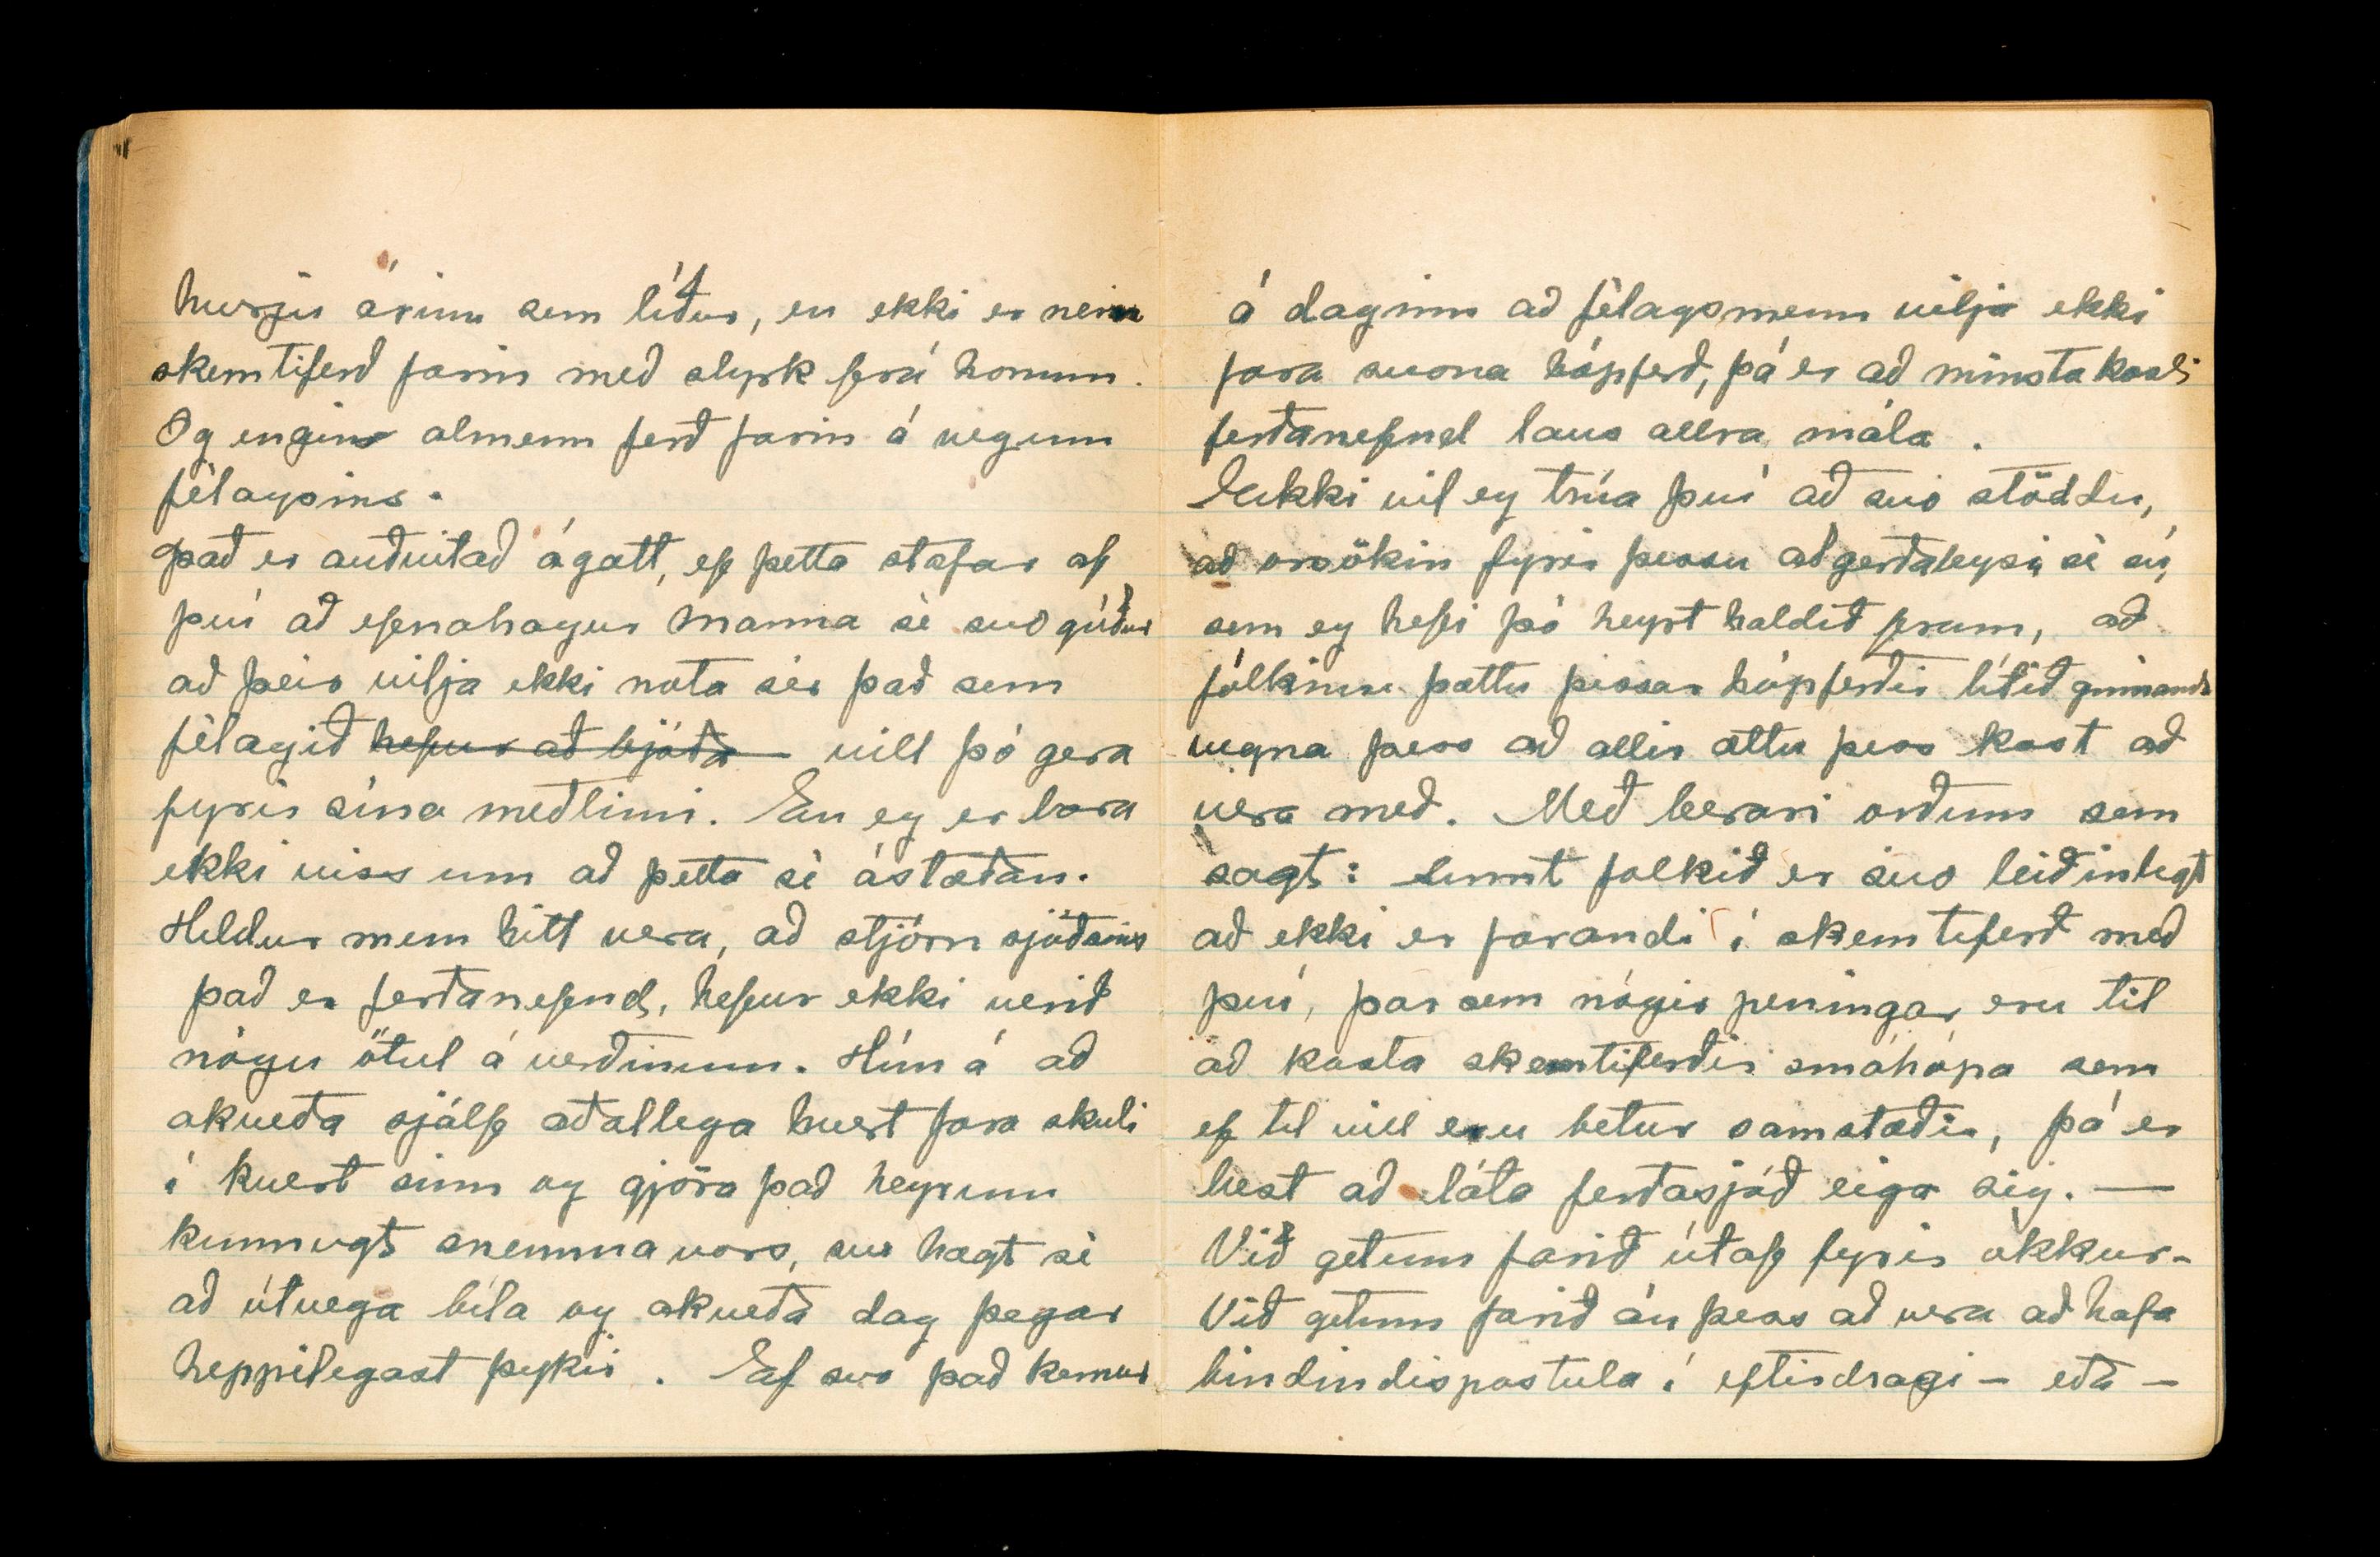 hverju árinu sem líður, en ekki er nein
skemtiferð farin með styrk frá honum.
Og engin almenn ferð farin á vegum
félagsins.
Það er auðvitað ágætt, ef þetta stafar af
því að efnahagur manna sé svo góður
að þeir vilja ekki nota sér það sem
félagið hefur að bjóða vill þó gera
fyrir sína meðlimi. En eg er bara
ekki viss um að þetta sé ástæðan.
Heldur mun hitt vera, að stjórn sjóðsins
það er ferðanefnd, hefur ekki verið
nógu ötul á verðinum. Hún á að
ákveða sjálf aðallega hvert fara skuli
í hvert sinn og gjöra það heyrum
kunnugt snemma vors, svo hægt sé
að útvega bíla og ákveða dag þegar
heppilegast þykir. Ef svo það kemur
á daginn að félagsmenn vilja ekki
fara svona hópferð, þá er að minsta kosti
ferðanefnd laus allra mála.
Ekki vil eg trúa því að svo stöddu,
að orsökin fyrir þessu aðgerðaleysi sé sú,
sem eg hefi þó heyrt haldið fram, að
fólkinu þættu þessar hópferðir lítið ginnandi
vegna þess að allir ættu þess kost að
vera með. Með berari orðum sem
sagt: sumt fólkið er svo leiðinlegt
að ekki er farandi í skemtiferð með
því, þar sem nógir peningar eru til
að kosta skemtiferðir smáhópa sem
ef til vill eru betur samstæðir, þá er
best að láta ferðasjóð eiga sig. —
Við getum farið útaf fyrir okkur-
Við getum farið án þess að vera að hafa
bindindispostula í eftirdragi - eða -